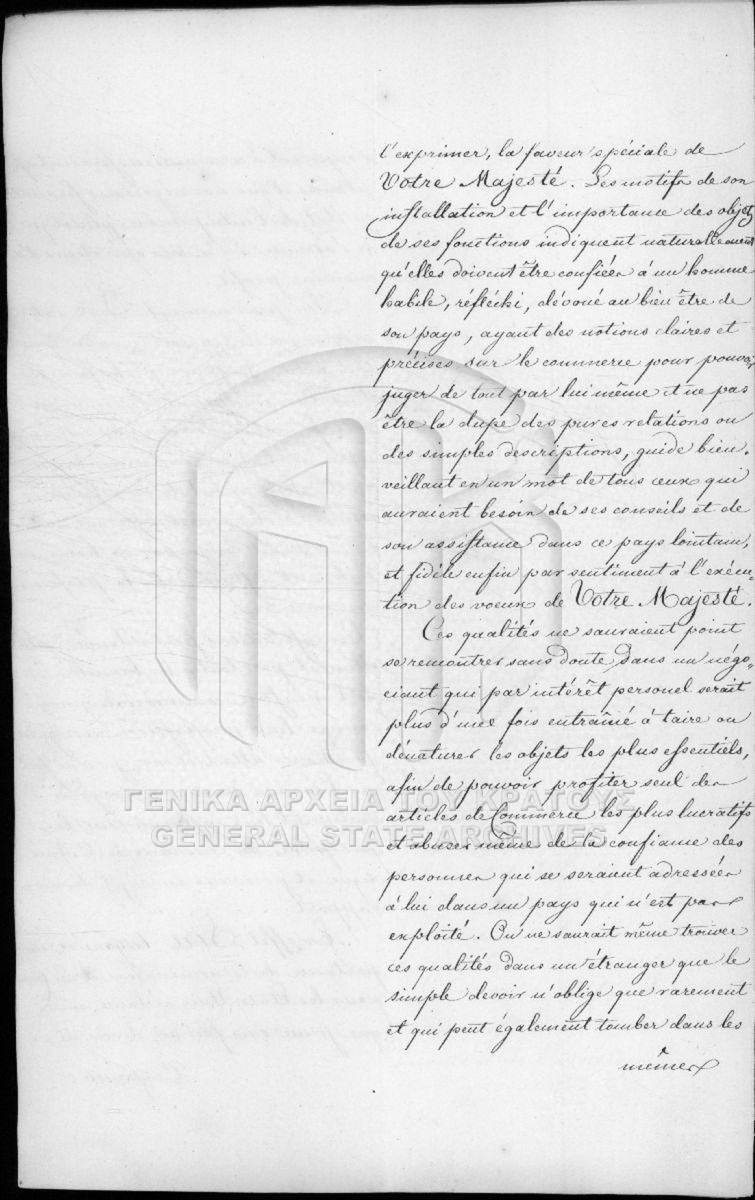 l'exprimer, la faveur spéciale de
Votre Majesté. Les motifs de son
installation et l'importance des objets
de ses fonctions indiquent naturellement
qu'elles doivent être confiées à un homme
habile, réfléchi, dévoué au bien être de
son pays, ayant des notions claires et
précises sur le commerce pour pouvoir
juger de tout par lui même et ne pas
être la dupe des pures relations ou
des simples descriptions, guide bien-
veillant en un mot de tous ceux qui
auraient besoin de ses conseils et de
son assistance dans ce pays lointain,
et fidèle enfin par sentiment à l'exécu
tion des voeux de Votre Majesté.
Ces qualités ne sauraient point
se remontrer sans doute dans un négo-
ciant qui par intérêt personel serait
plus d'une fois entraîné à taire ou
dénaturer les objets les plus essentiels,
afin de pouvoir profiter seul des
articles de Commerce les plus lucratifs
et abuser même de la confiance des
personnes qui se seraient adressées
à lui dans un pays qui n'est pas
exploité. On ne saurait même trouver
ces qualités dans un étranger que le
simple devoir n'oblige que rarement
et qui peut également tomber dans les
mêmes
ΓΕΝΙΚΑ ΑΡΧΕΙΑ ΤΟΥ ΚΡΑΤΟΥΣ
GENERAL STATE ARCHIVES